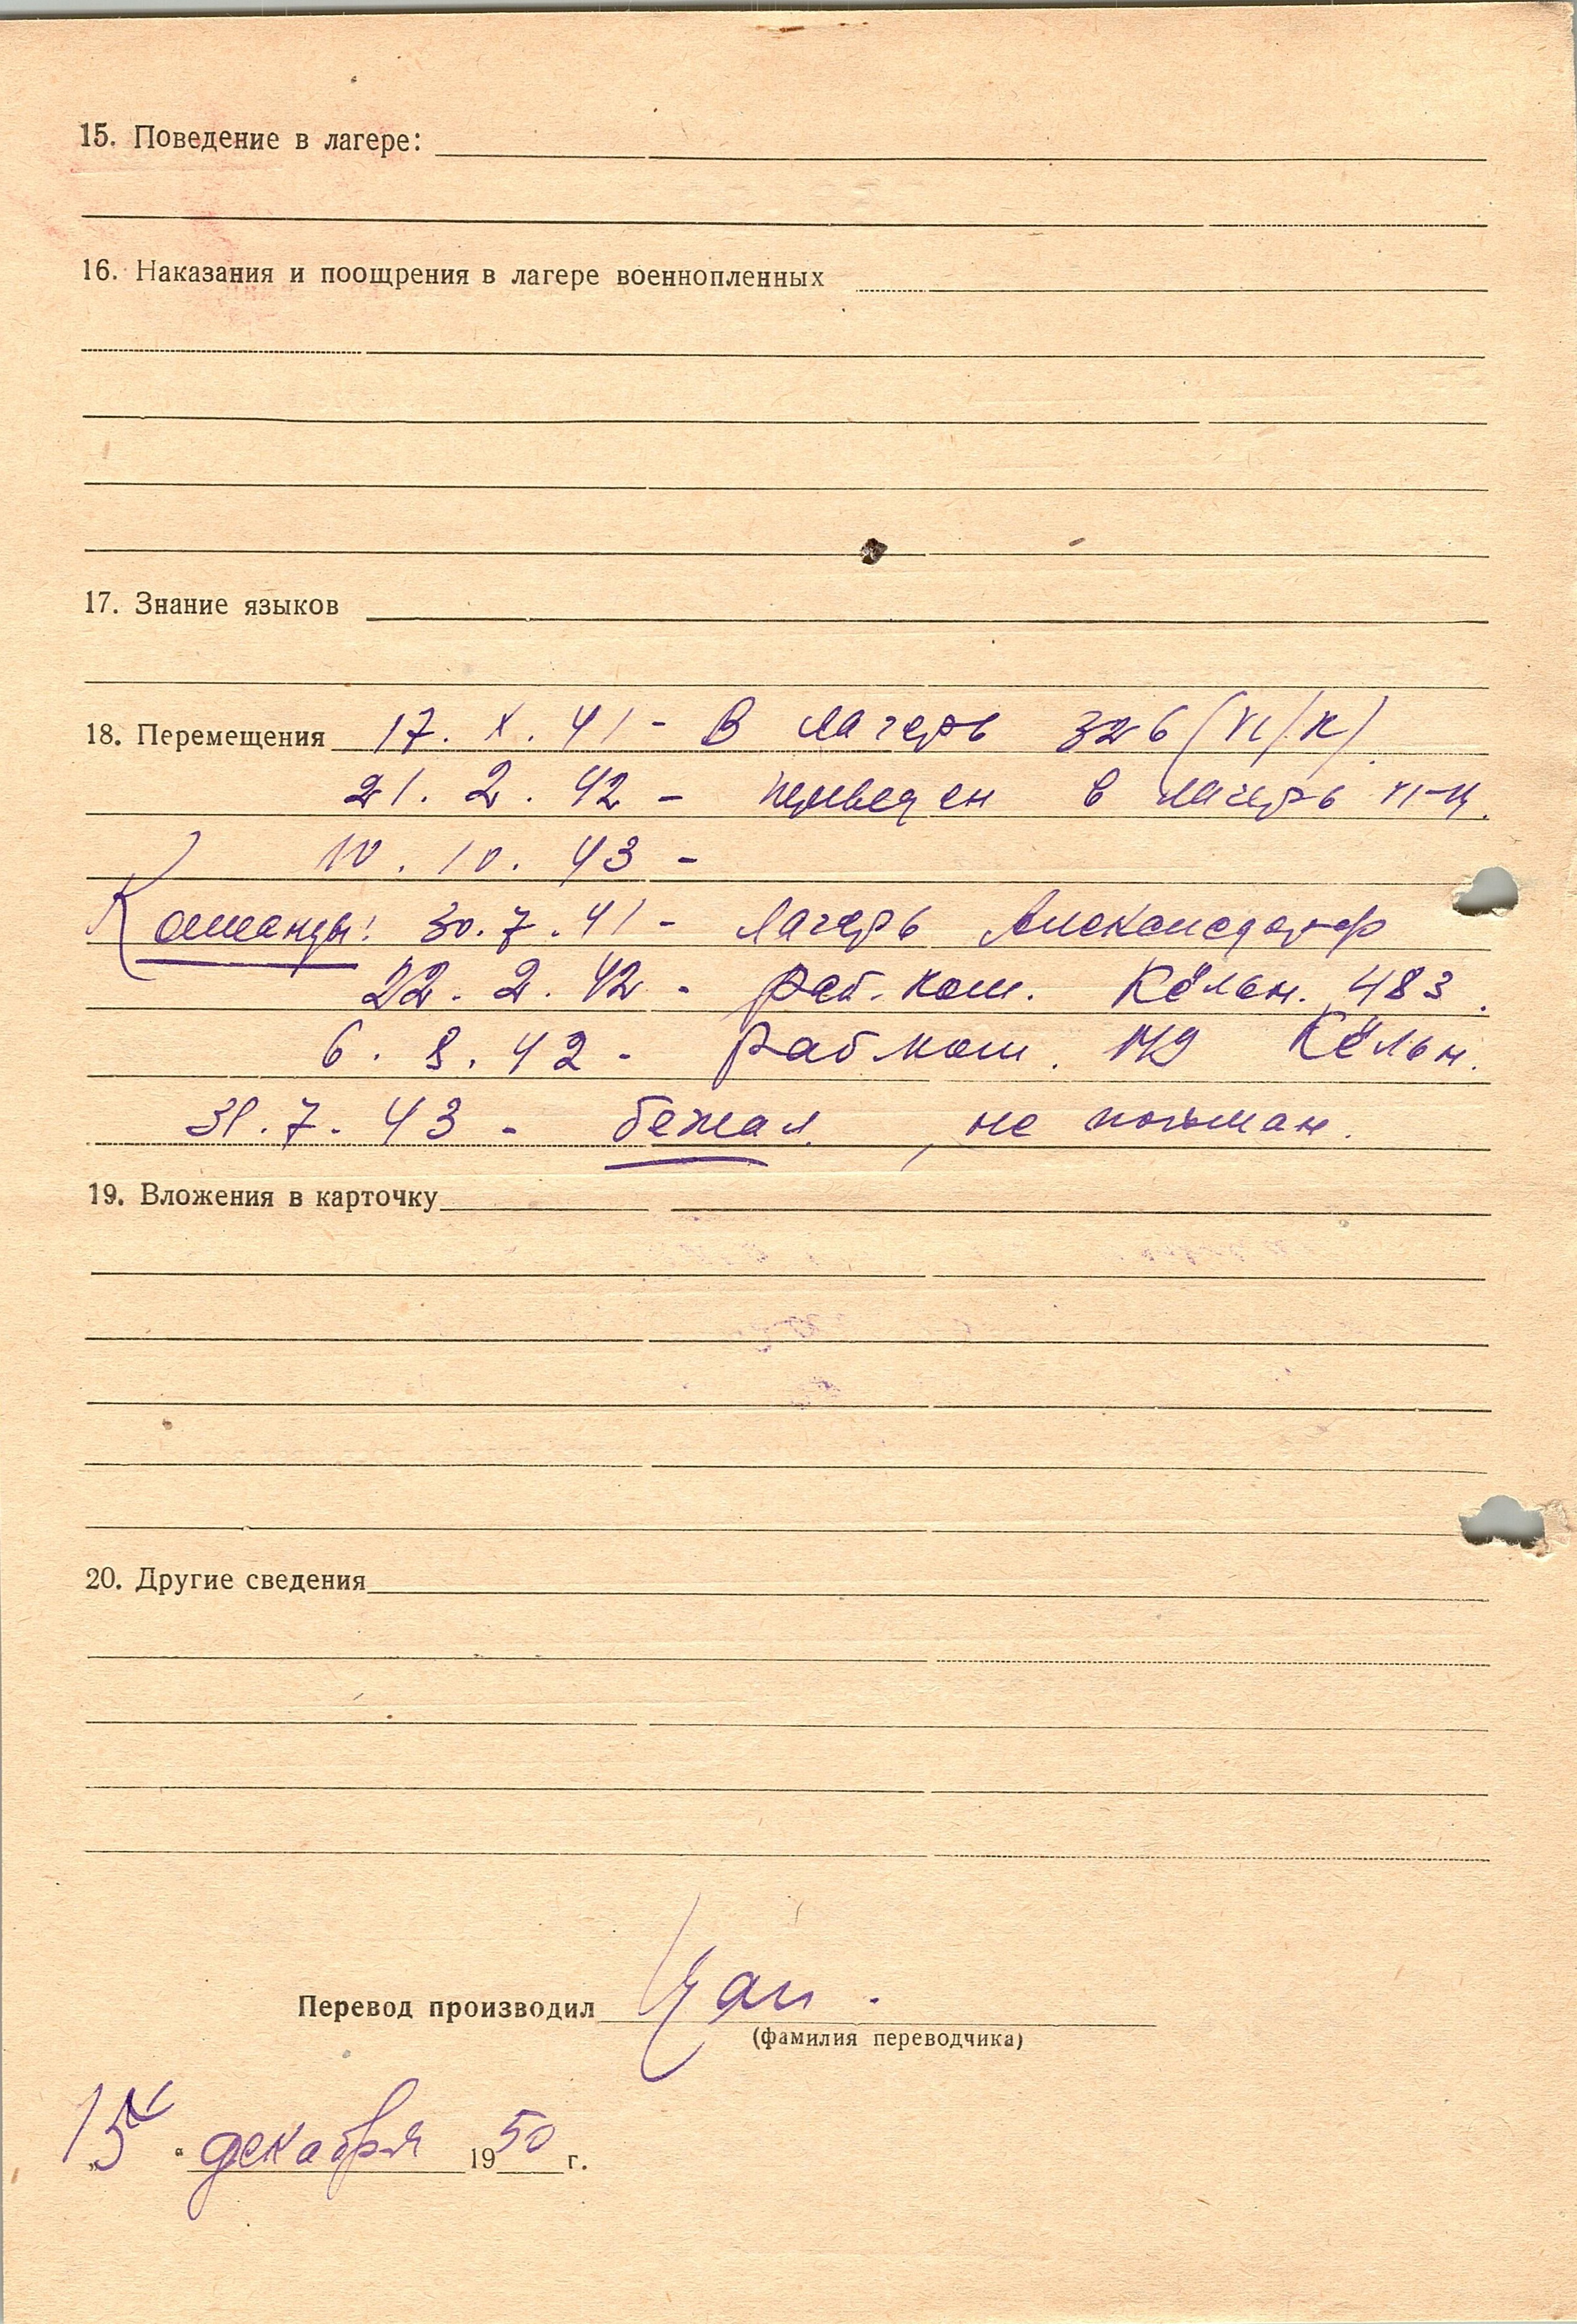 15. Поведение в лагере:
16. Наказания и поощрения в лагере военнопленных
17. Знание языков
18. Перемещения 17. X. 41 - В лагерь 326 (VI/K)
21. 2. 42 - переведен в лагерь VI-
10. 10. 43 -
Команды: 30. 7. 41 - лагерь Александорф
22. 2. 42 - раб. ком. Кёльн. 483.
6. 8. 42 - раб ком. Кёльн.
31. 7. 43 - бежал, не пойман.
19. Вложения в карточку
20. Другие сведения
Перевод производил
(фамилия переводчика)
„15“ декабря 1950 г.